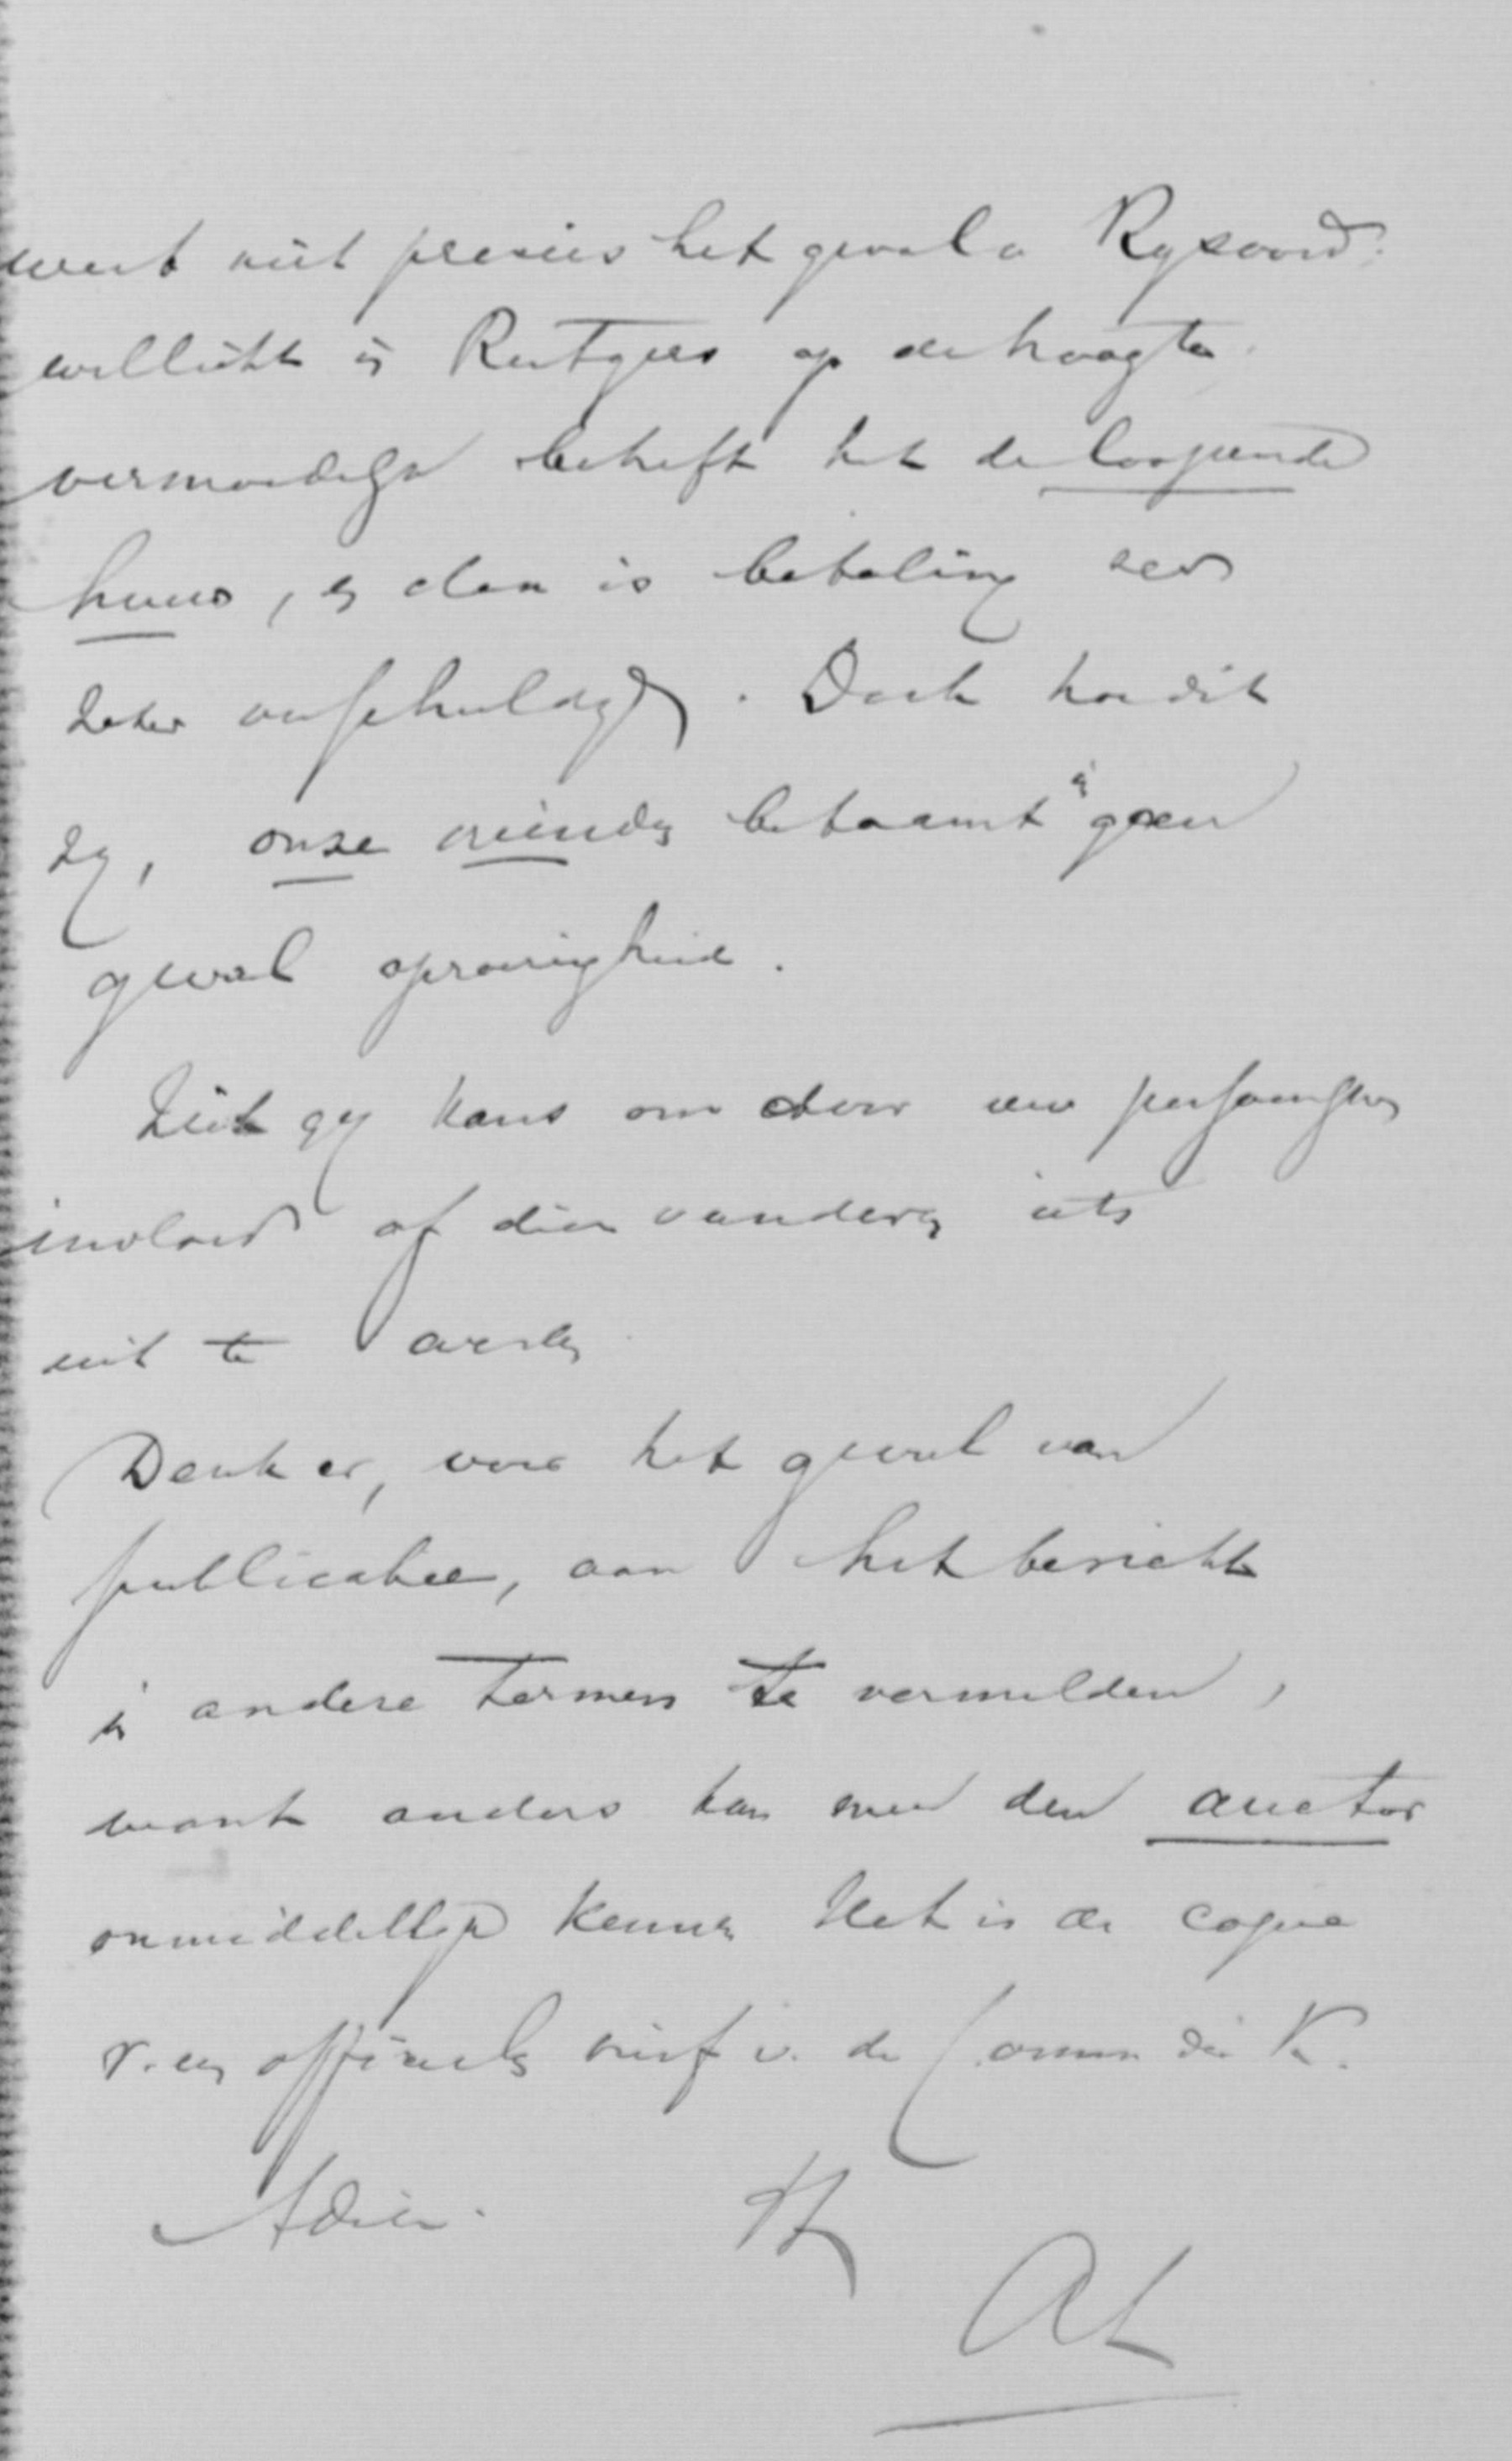 weet niet precies het geval v Rysoord:
wellicht is Rutgers op de hoogte.
vermoedelijk betreft het de loopende
huur, en dan is betaling
zeker verschuldigd. Doch hoe dit
zij, onze vrienden betaamt in geen
geval oproerigheid.
Ziet gij kans om door uw persoonlijken
invloed of dien v anderen iets
uit te
Denk er, voor het geval van
publicatie, aan het bericht
in andere termen te vermelden,
want anders kan men den auctor
onmiddellijk kennen Het is de copie
v. een officieele brief v. de Comm
Adieu. tt
AL